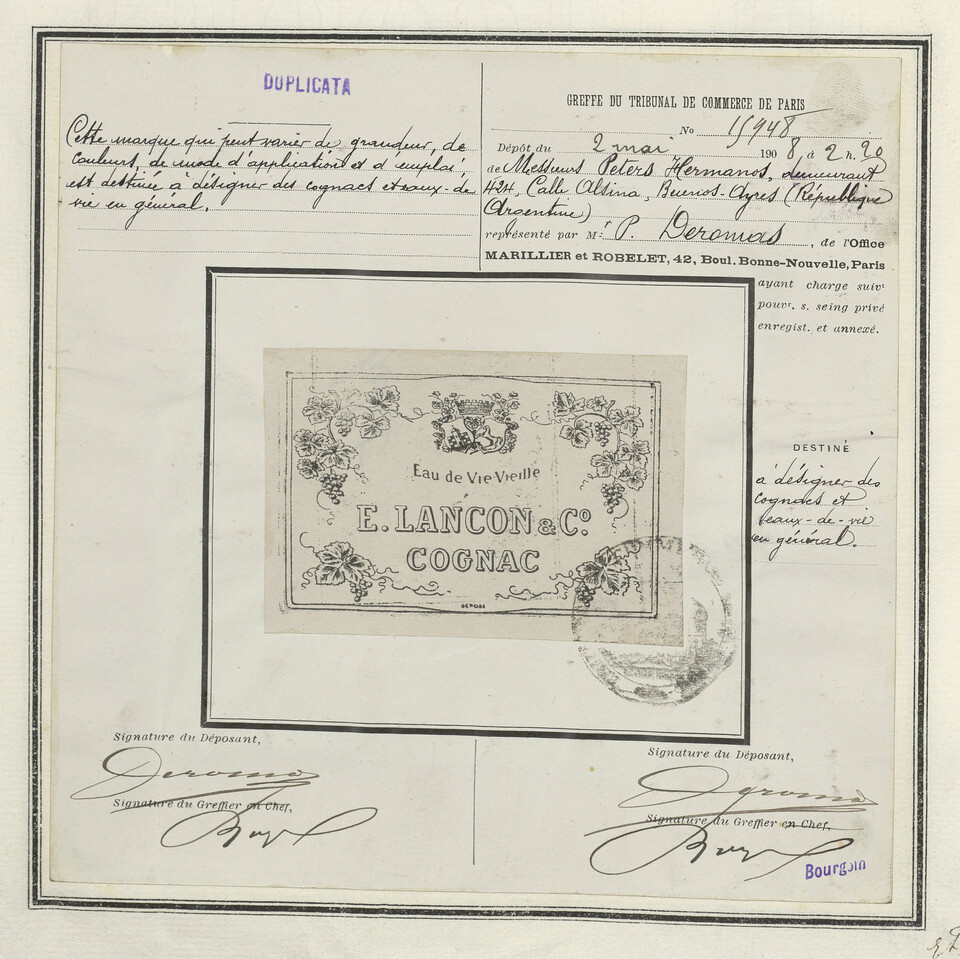 DUPLICATA
Cette marque qui peut varier de grandeur, de
couleurs, de mode d'application et d'emploi
est destinée à désigner des cognacs et eaux-de-
vie en général.
GREFFE DU TRIBUNAL DE COMMERCE DE PARIS
No 15948
Dépôt du 2 mai 1908, à 2 h. 20
de Messieurs Peters Hermanos, demeurant
424, Calle Alsina, Buenos-Ayres (République
Argentine)
représenté par Mr P. Deromas, de l'Office
MARILLIER et ROBELET, 42, Boul. Bonne-Nouvelle, Paris
ayant charge suivt
pouvr. s. seing privé
enregist. et annexé.
Eau de Vie Vieille
E. LANCON & Co.
COGNAC
DEPOSE
DESTINÉ
à désigner des
cognacs et
eaux-de-vie
en général.
Signature du Déposant,
Deromas
Signature du Greffier en Chef,
Signature du Déposant,
Deromas
Signature du Greffier en Chef,
Bourgoin